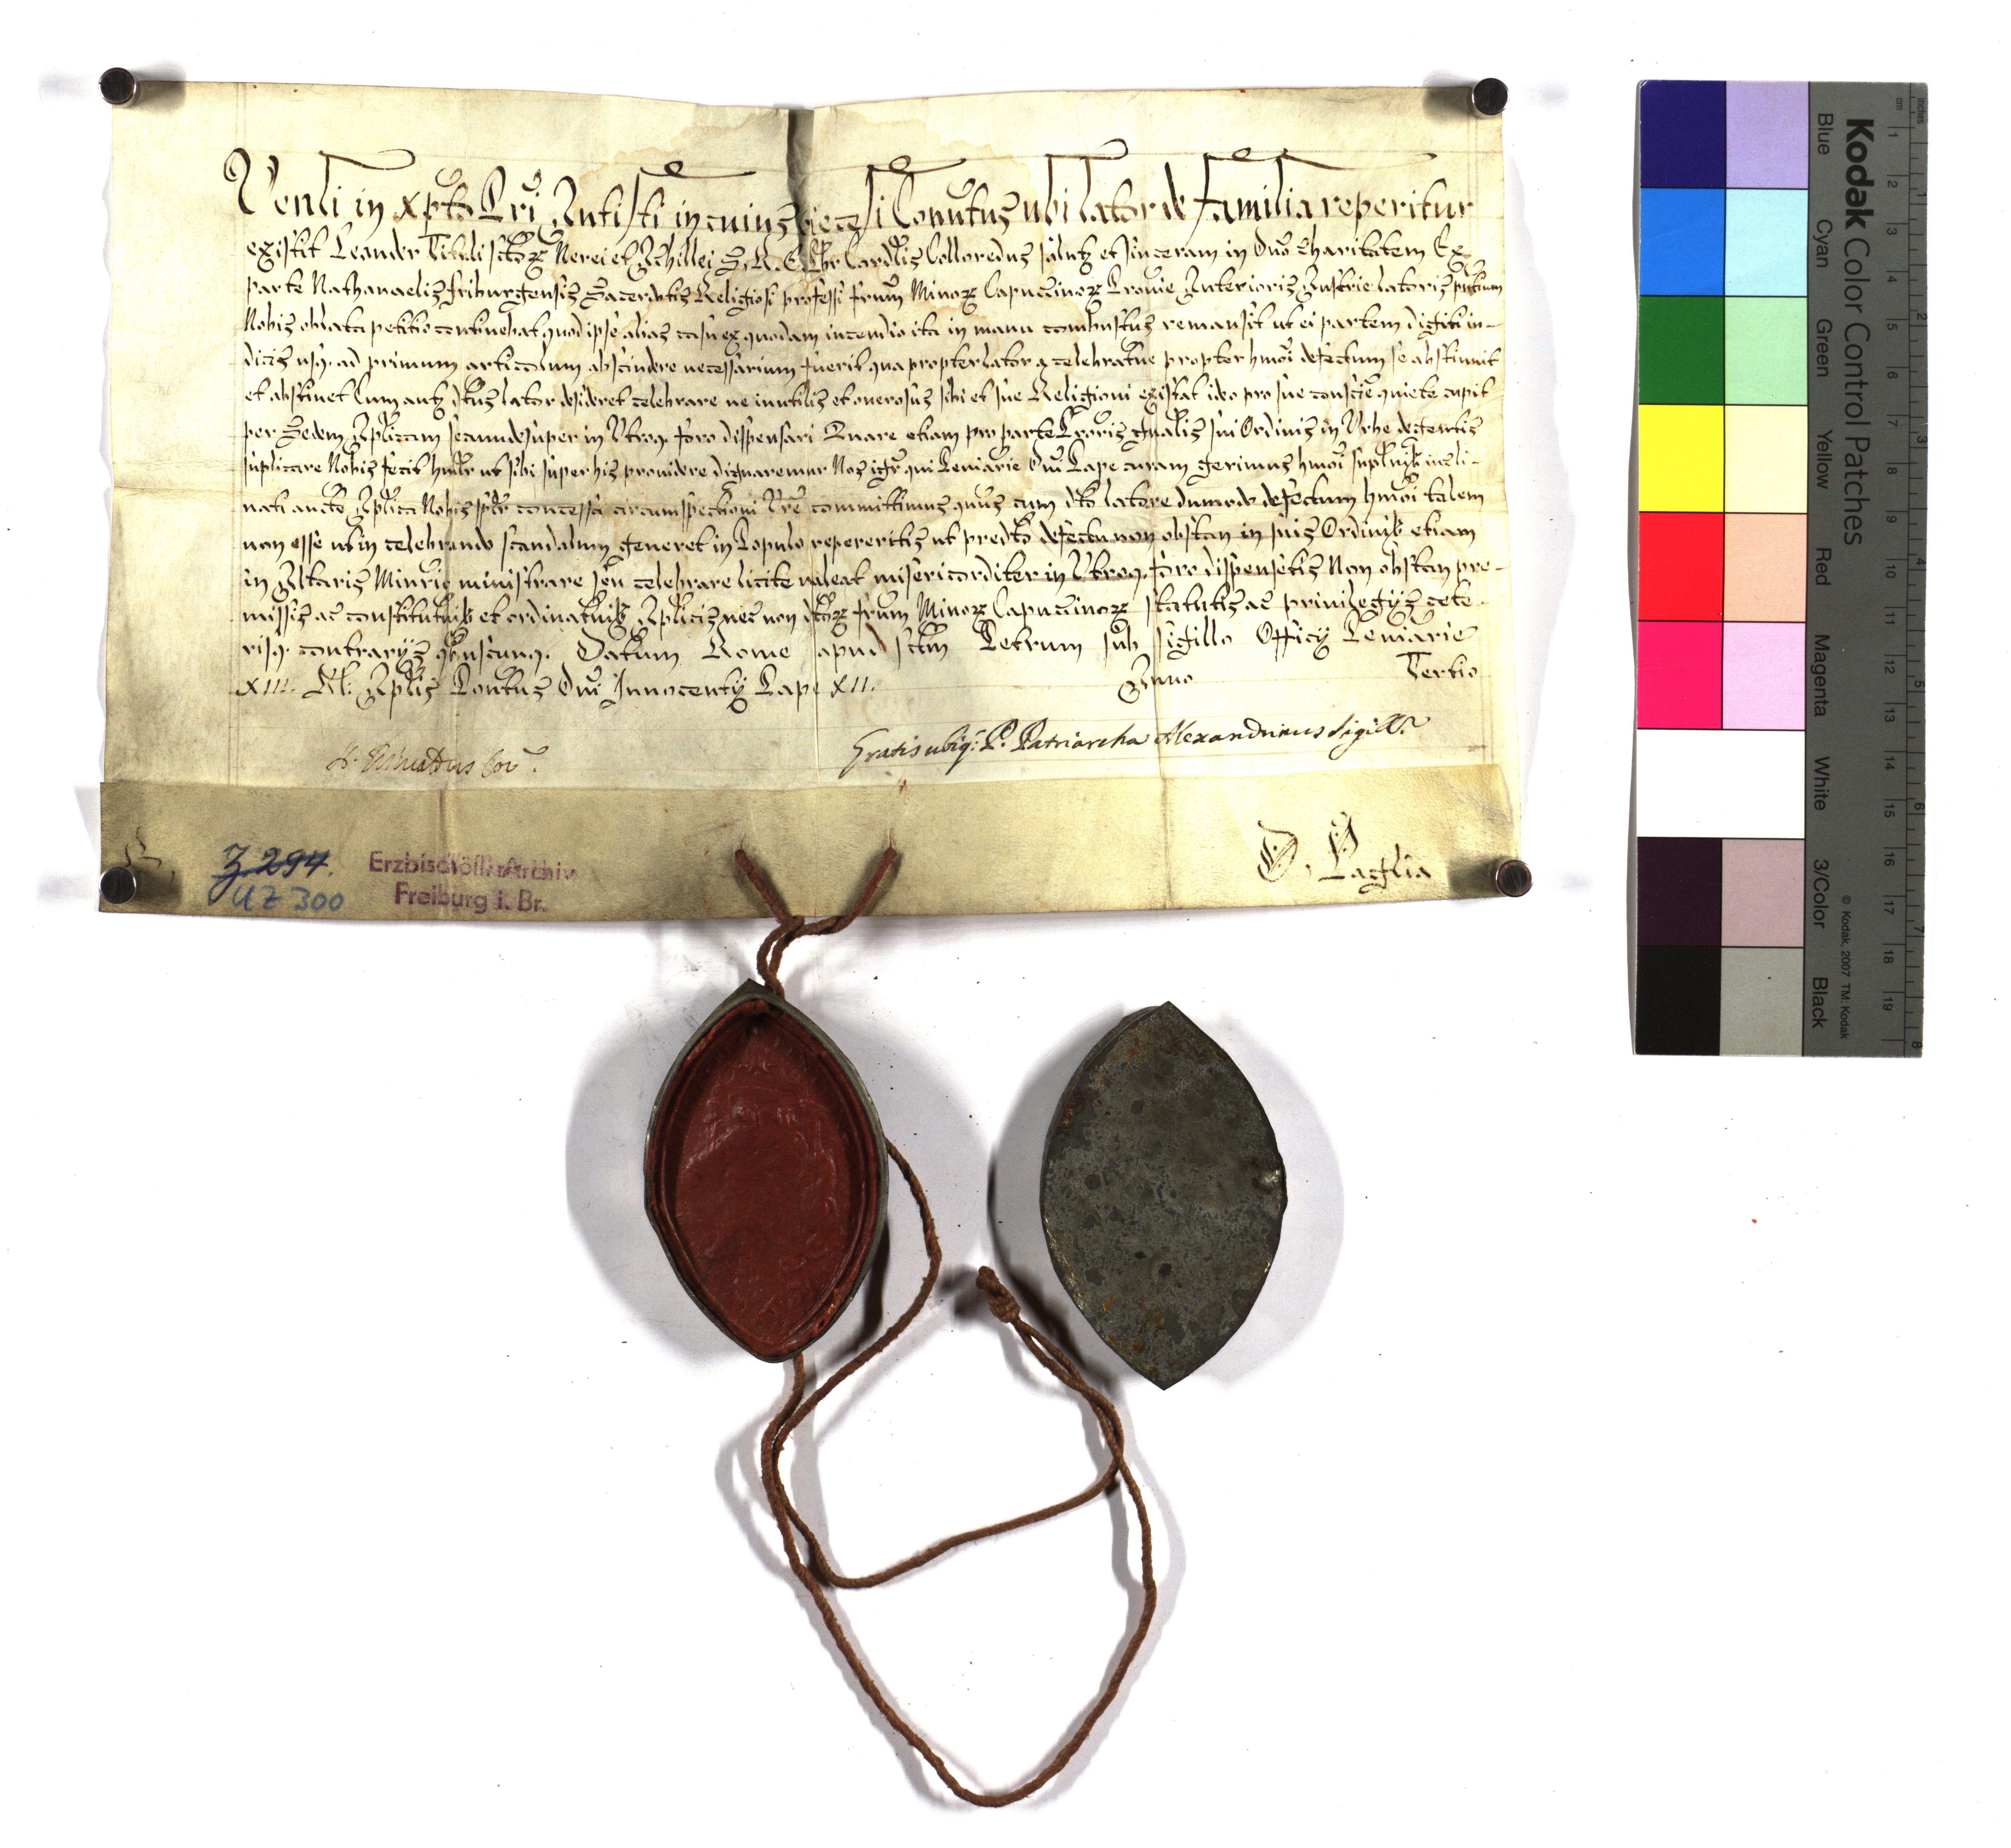 Venli in Xpto Pri Antisti in cuius diecesi Conutus ubi lator de Familia reperitur
existit Leander Tituli sctor Nerei et Achillei S. R. E. Pbr Cardlis Colloredus salutz et sinceram in Dno charitatem Ex
parte Nathanaelis friburgensis Sacerdotis Religiosi professi frum Minor Capuccinor Provie Anterioris Austrie latoris pntium
Nobis oblata petitio continebat quod ipse alias casu ex quodam incendio ita in manu combustus remansit ut ei partem digiti in-
dicis usq. ad primum articulum abscindere necessarium fuerit qua propter lator a celebratne propter hmoi defectum se abstinuit
et abstinet Cum autz dtus lator desideret celebrare ne inutilis et onerosus sibi et sue Religioni existat ideo pro sue conscie quiete cupit
per Sedem Aplicam secum desuper in Utroq. foro dispensari Quare etiam pro parte Proris gnalis sui Ordinis in Urbe degentis
suplicare Nobis fecit hulr ut sibi super his providere dignaremur Nos igr qui Peniarie Dni Pape curam gerimus hmoi supltnib incli-
nati aucte Aplica Nobis splr concessa circumspectioni Vre committimus qnus cum dto latore dummodo defectum hmoi talem
non esse ut in celebrando scandalum generet in Populo repereritis ut predto defectu non obstan in suis Ordinib etiam
in Altaris Minrio ministrare seu celebrare licite valeat misericorditer in Utroq. foro dispensetis Non obstan pre-
missis ac constitutnib et ordinatnib Aplicis nec non dtor frum Minor Capuccinor statutis ac privilegijs cete
risq. contrarijs qbuscunq. Datum Rome apud sctm Petrum sub sigillo Officij Peniarie
XIII. Kl: Aplis Pontus Dni Innocentij Pape XII. Anno Tertio
Gratis ubiq: P. Patriarcha Alexandrinus Sigill.r
Cor.
D. Paglia
Z 294.
UZ 300
Erzbischöfl. Archiv
Freiburg i. Br.
Kodak Color Control Patches
Blue Cyan Green Yellow Red Magenta White 3/Color Black
© Kodak, 2007 TM: Kodak
cm 1 2 3 4 5 6 7 8 9 10 11 12 13 14 15 16 17 18 19
inches 1 2 3 4 5 6 7 8